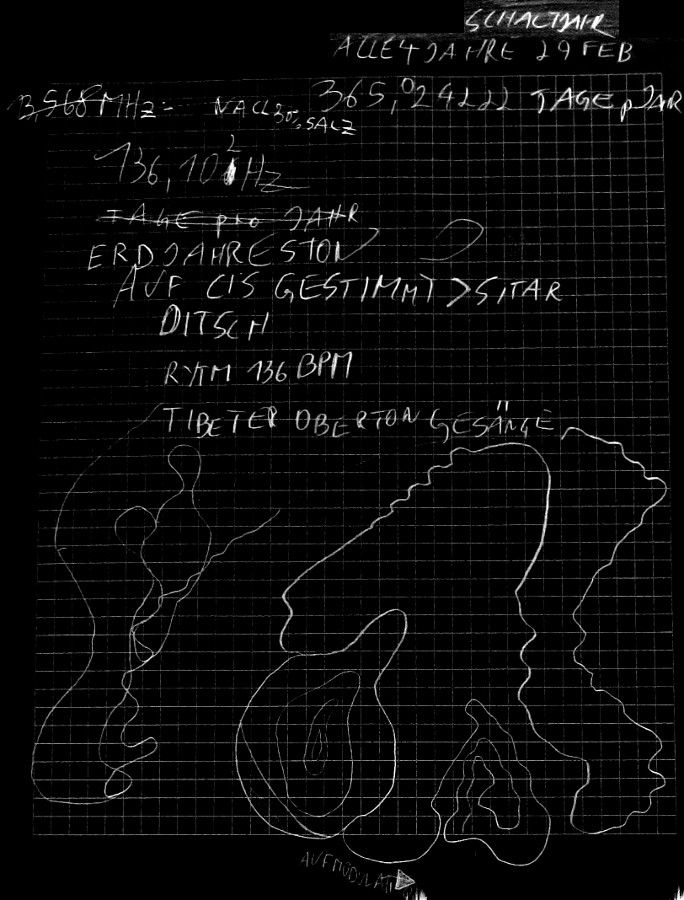 SCHALTJAHR
ALLE 4 JAHRE 29 FEB
MHz = NACL 30% SALZ 365,°24222 TAGE p JAR
136,102 Hz
TAGE pro JAHR
ERDJAHRESTON
AUF CIS GESTIMMT > SITAR
DITSCH
RYTM 136 BPM
TIBETER OBERTON GESÄNGE